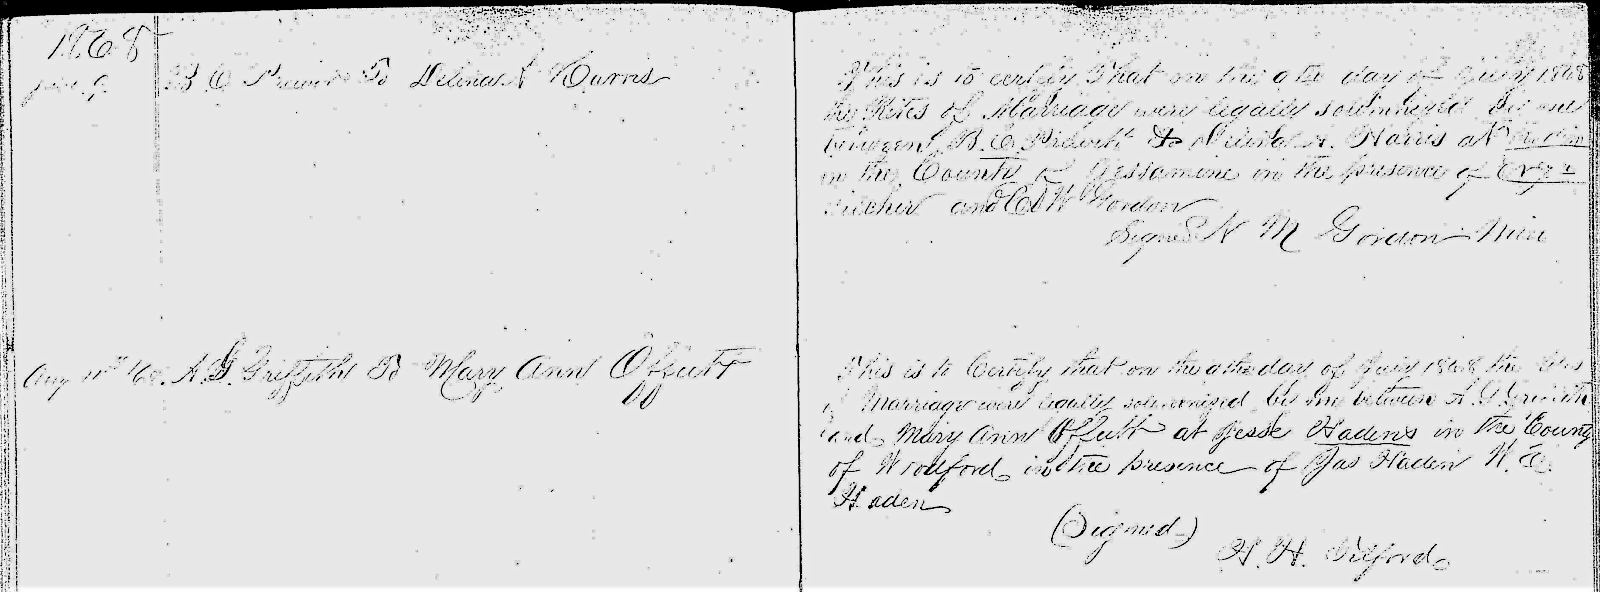 1868
B. C. To A Harris
This is to certify That on the day of 1868
the Rites of Marriage were legally solemnized by me
between B. C. Prewitt To A. Harris at
in the County of Jessamine in the presence of
and Gordon
Signed N M Gordon Min
Aug 11th A. G. Griffith To Mary Ann Offutt
This is to Certify that on the day of July 1868 the Rites
of Marriage were legally solemnized by me between A. G. Griffith
and Mary Ann Offutt at Jesse Hadens in the County
of Woodford in the presence of Jas Haden W. E
Haden
(Signed)
H. H. Tilford